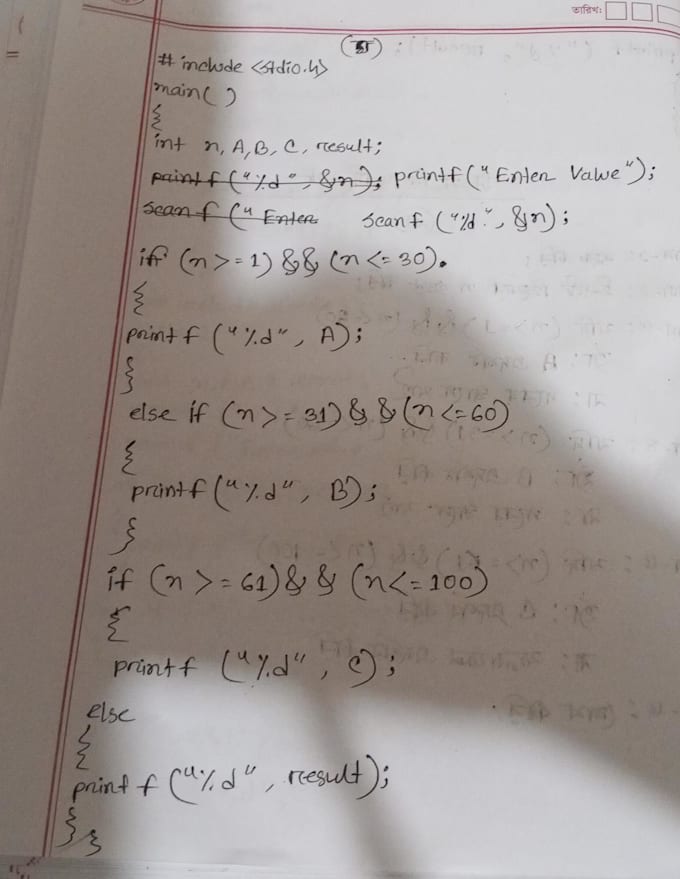 তারিখঃ
# include <stdio.h>
main( )
{
int n, A, B, C, result;
printf("%d", &n); printf("Enter Value");
scanf("Enter scanf("%d", &n);
if (n >= 1) && (n <= 30).
{
printf("%d", A);
}
else if (n >= 31) && (n <= 60)
{
printf("%d", B);
}
if (n >= 61) && (n <= 100)
{
printf("%d", C);
else
{
printf("%d", result);
}
}